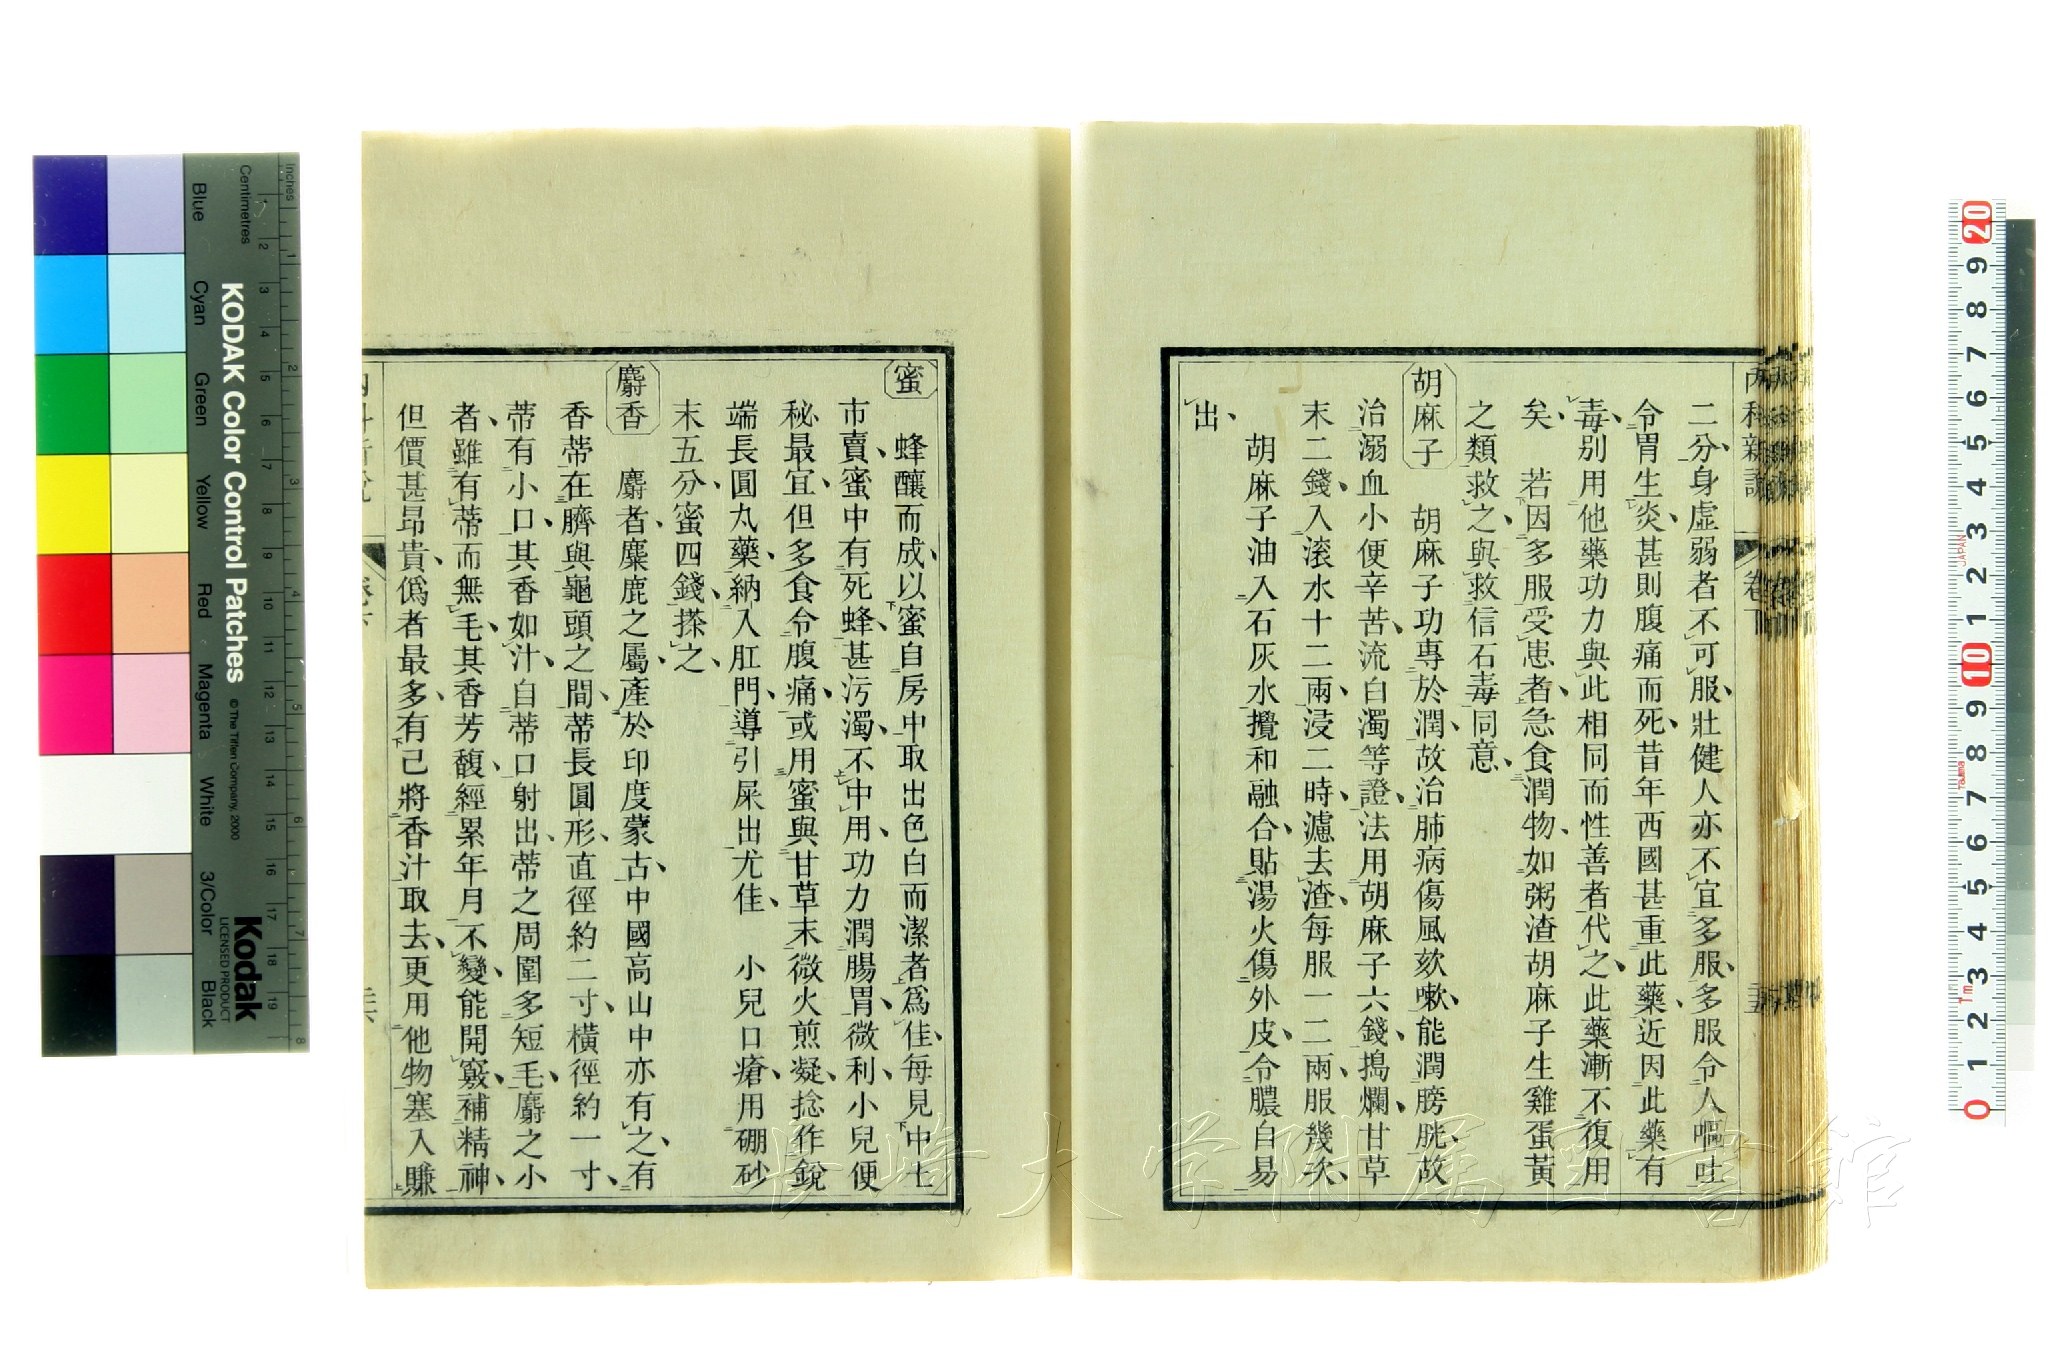 內科新說
卷下
二分身虛弱者不可服壯健人亦不宜多服多服令人嘔吐
令胃生炎甚則腹痛而死昔年西國甚重此藥近因此藥有
毒別用他藥功力與此相同而性善者代之此藥漸不復用
矣 若因多服受患者急食潤物如粥渣胡麻子生雞蛋黃
之類救之與救信石毒同意
胡麻子 胡麻子功專於潤故治肺病傷風欬嗽能潤膀胱故
治溺血小便辛苦流白濁等證法用胡麻子六錢搗爛甘草
末二錢入滾水十二兩浸二時濾去渣每服一二兩服幾次
胡麻子油入石灰水攪和融合貼湯火傷外皮令膿自易
出
蜜
蜂釀而成以蜜自房中取出色白而潔者爲佳每見中土
市賣蜜中有死蜂甚污濁不中用功力潤腸胃微利小兒便
秘最宜但多食令腹痛或用蜜與甘草末微火煎凝捻作銳
端長圓丸藥納入肛門導引屎出尤佳 小兒口瘡用硼砂
末五分蜜四錢搽之
麝香 麝者麋鹿之屬產於印度蒙古中國高山中亦有之有
香蒂在臍與龜頭之間蒂長圓形直徑約二寸橫徑約一寸
蒂有小口其香如汁自蒂口射出蒂之周圍多短毛麝之小
者雖有蒂而無毛其香芳馥經累年月不變能開竅補精神
但價甚昂貴僞者最多有己將香汁取去更用他物塞入賺
Blue
Cyan
Green
Yellow
Red
Magenta
White
3/Color
Black
Centimetres
Inches
KODAK Color Control Patches
© The Tiffen Company, 2000
Kodak
LICENSED PRODUCT
20 9 8 7 6 5 4 3 2 1 10 9 8 7 6 5 4 3 2 1 0
JAPAN
Tajima
1m
長崎大学附属図書館